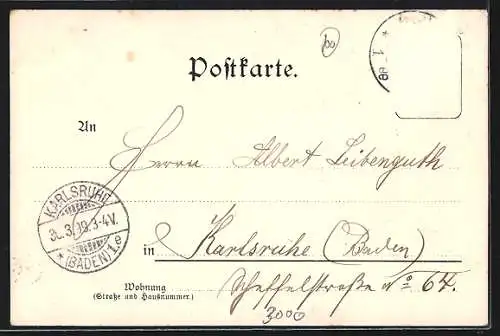 bo
Postkarte.
* 1 00
An
Herrn Albert Leibenguth
KARLSRUHE
3.99.3-4V.
* (BADEN) 1.e
in Karlsruhe (Baden)
Wohnung
(Straße und Hausnummer.)
Scheffelstraße No 64.
3000